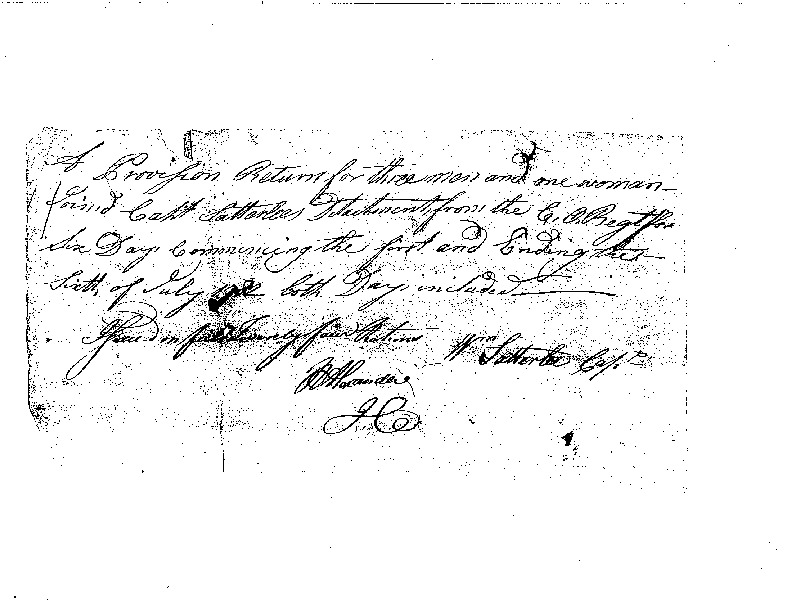 A Provision Return for three men and one woman
Joind Capt Satterlees Detachment from the C. A. Regt for
Six Days Commencing the first and Ending the
Sixth of July both Days included
Issued in full Twenty four Rations Wm Satterlee Capt
Alexander